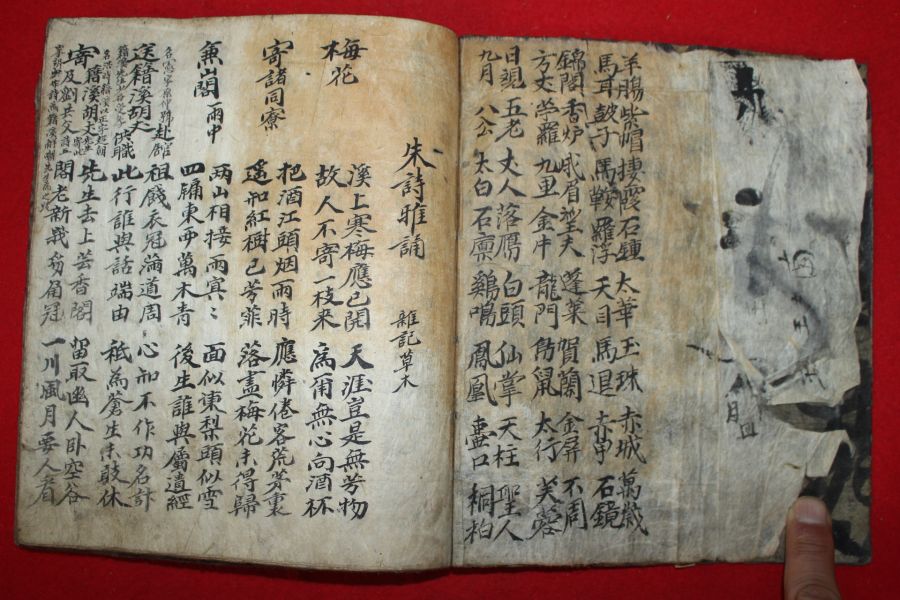 羊腸 紫帽 棲霞 石鍾 太華 玉珠 赤城 萬歲
馬耳 鼓子 馬鞍 羅浮 天目 馬退 赤甲 石鏡
錦閣 香炉 峨眉 望夫 蓬萊 賀蘭 金屛 不周
方丈 羅 九里 金牛 龍門 鼠 太行 芙蓉
日觀 五老 丈人 落鴈 白頭 仙掌 天柱 聖人
九月 八公 太白 石廩 鷄鳴 鳳凰 壷口 桐柏
朱詩雅誦 雜記草木
梅花
溪上寒梅應已開 天涯豈是無芳物
故人不寄一枝来 為爾無心向酒杯
寄諸同寮
把酒江頭烟雨時 應憐倦客荒茅裏
遙知紅樹已芳菲 落盡梅花未得歸
兼山閣 雨中
兩山相接雨冥〻 面似凍梨頭似雪
四牖東西萬木青 後生誰與屬遺經
送籍溪胡丈赴舘供職
祖餞衣冠滿道周 心知不作功名計
此行誰與話端由 祗為蒼生未敢休
寄籍溪胡丈及劉共父
先生去上芸香閣 留取幽人卧空谷
閣老新峩豸角冠 一川風月要人看